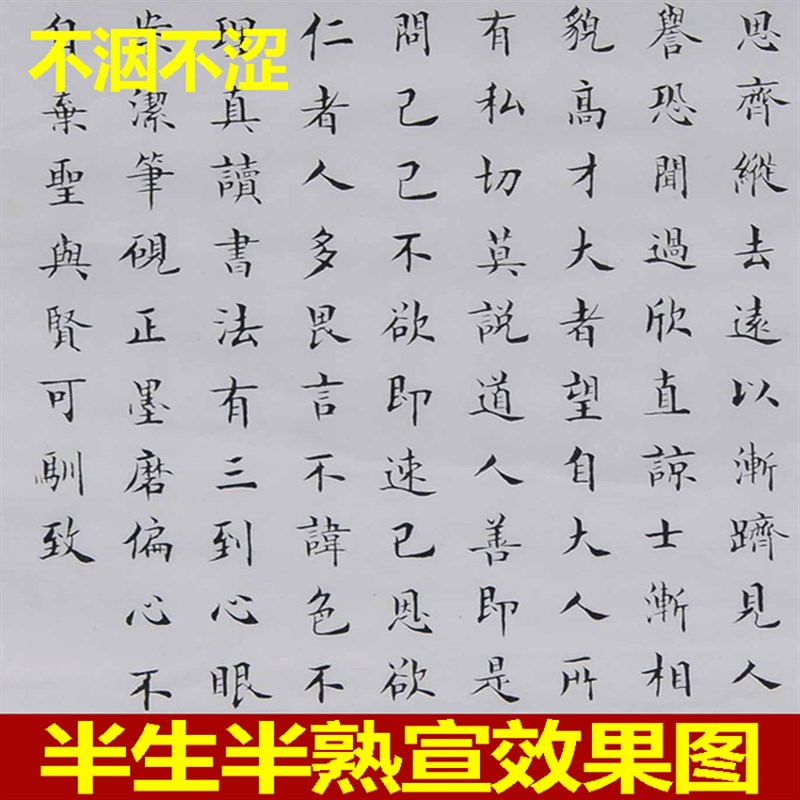 不洇不涩
思齊縱去遠以漸躋見人
譽恐聞過欣直諒士漸相
貌高才大者望自大人所
有私切莫說道人善即是
問己己不欲即速已恩欲
仁者人多畏言不諱色不
理真讀書法有三到心眼
潔筆硯正墨磨偏心不
自棄聖與賢可馴致
半生半熟宣效果图